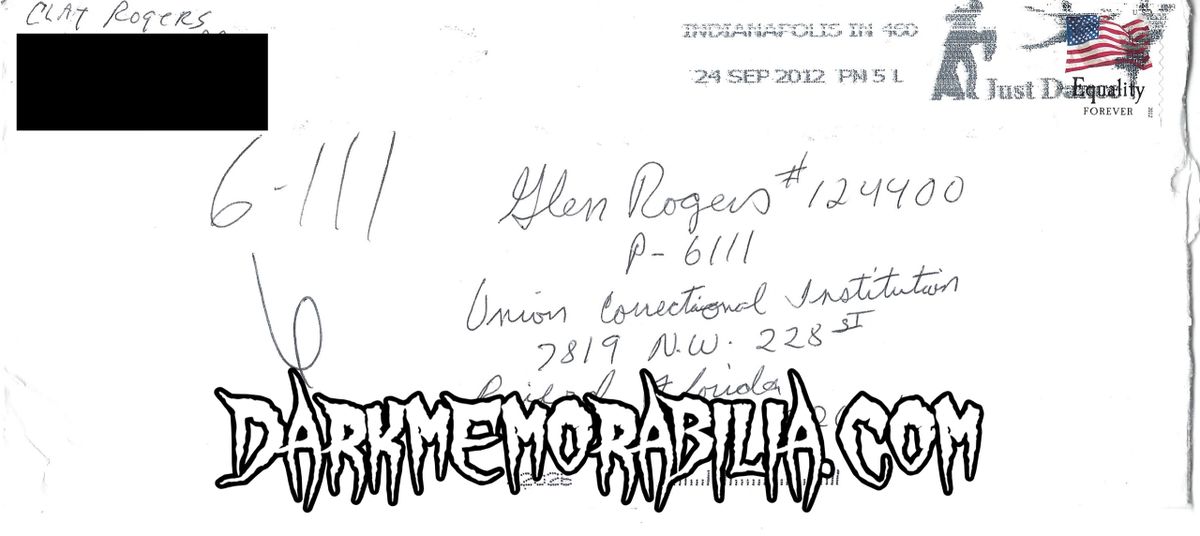 CLAY ROGERS
INDIANAPOLIS IN 460
24 SEP 2012 PM 5 L
Just Dance
Equality
FOREVER
2012
6-111
Glen Rogers #124400
P-6111
Union Correctional Institution
7819 N.W. 228 ST
Florida
DARKMEMORABILIA.COM